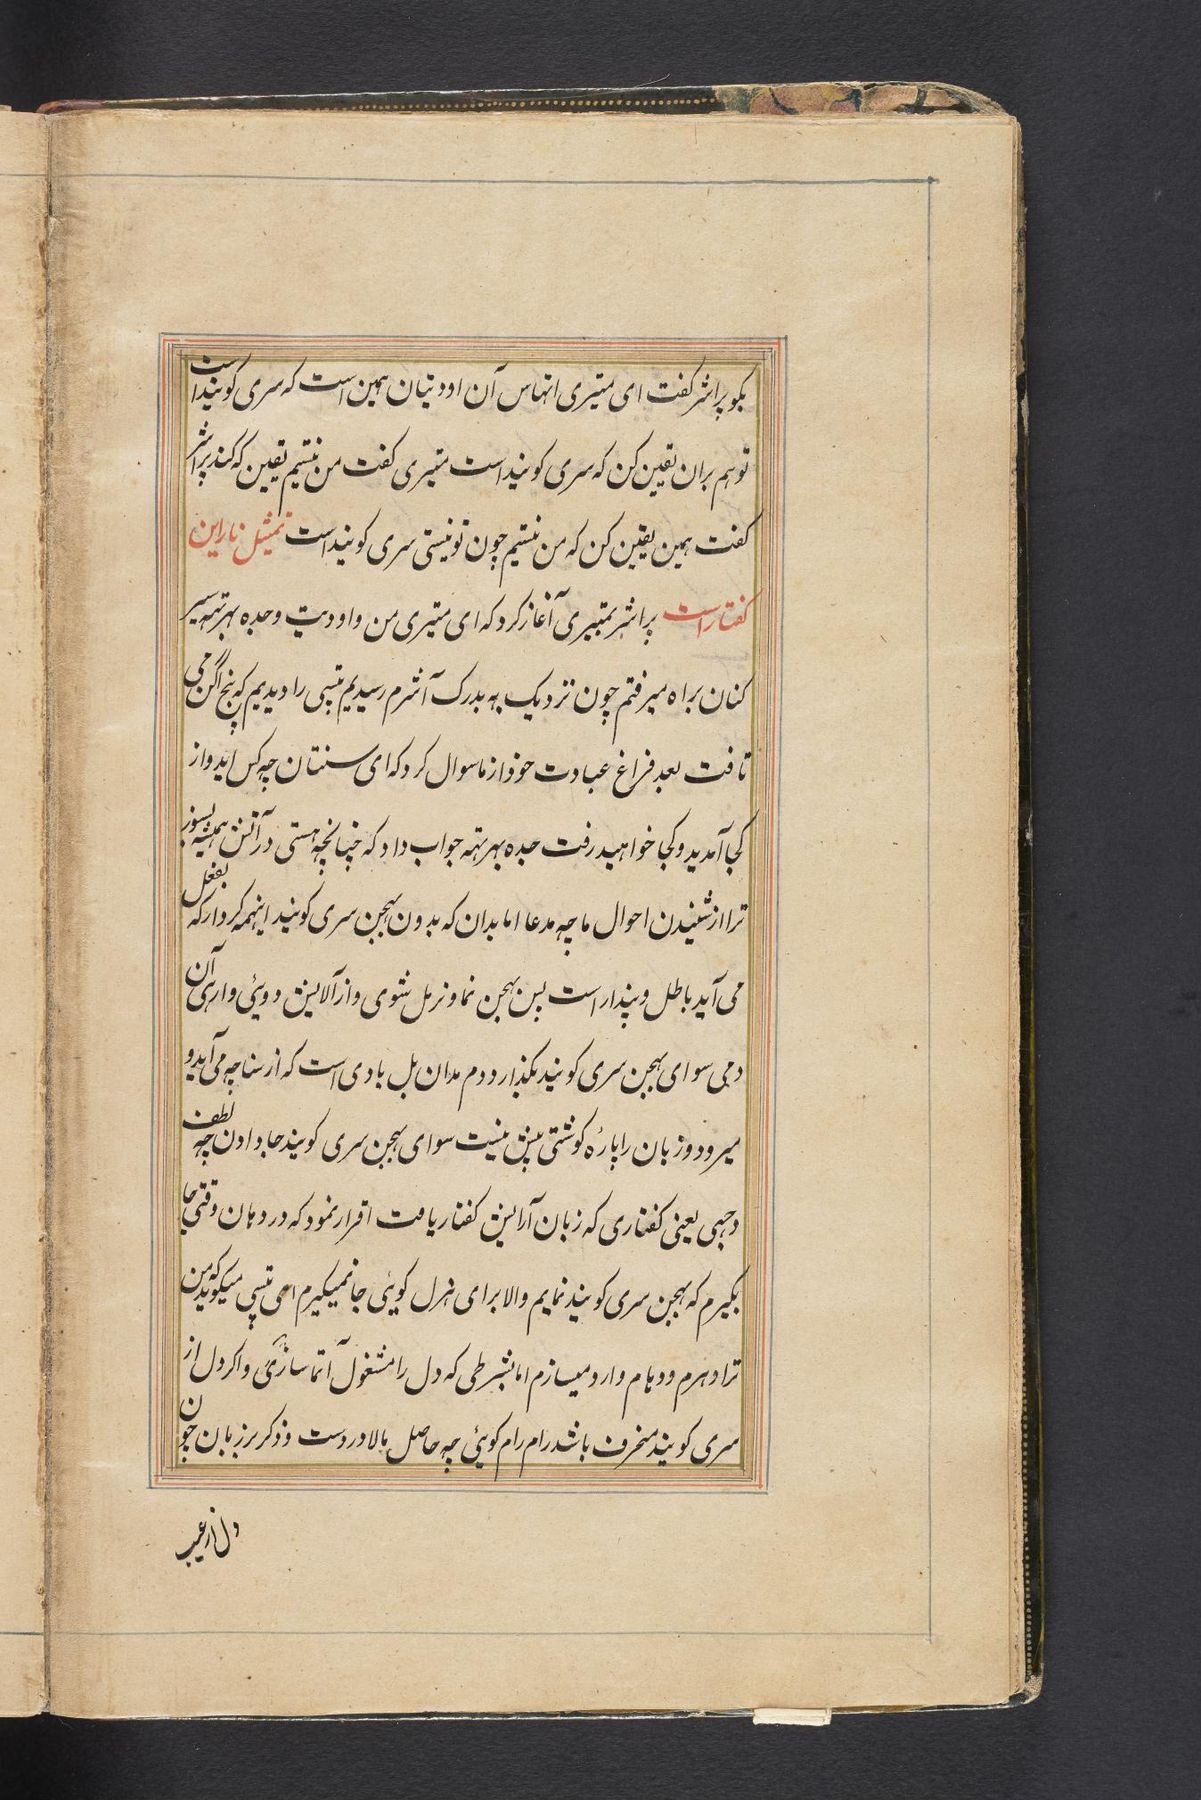 بگو پراشر گفت ای متیری انتهاس آن اودیتیان همین است که سری کوبند است
تو هم بران یقین کن که سری کوبند است متیری گفت من نیستم یقین که کند پراشر
گفت همین یقین کن که من نیستم چون تو نیستی سری کوبند است تمثیل ناراین
گفتار است پراشر بمتیری آغاز کرد که ای متیری من و اودیت و جده بهرتهه سیر
کنان براه میرفتم چون نزدیک به بدرک آشرم رسیدیم تپسی را دیدیم که پنج اگن می
تافت بعد فراغ عبادت خود از ما سوال کرد که ای سنتان چه کس اید و از
کجا آمدید و کجا خواهید رفت جده بهرتهه جواب داد که چنانچه هستی در آتش همیشه بسوز
ترا از شنیدن احوال ما چه مدعا اما بدان که بدون بهجن سری کوبند اینهمه کردار که بفعل
می آید باطل و پندار است پس بهجن نما و نرمل شوی و از آلایش دوئی وارهی آن
دمی سوای بهجن سری کوبند مگذار و دم مدان بل بادی است که از سناچه می آید و
میرود و زبان را پارهٔ گوشتی بیش نیست سوای بهجن سری کوبند جا دادن چه لطف
دجهی یعنی گفتاری که زبان آرایش گفتار یافت اقرار نمود که در دهان وقتی جا
بگیرم که بهجن سری کوبند نمایم والا برای هزل گوئی جا نمیگیرم ای تپسی میگوید که من
ترا دهرم و دهام وارد میسازم اما بشرطی که دل را مشغول آتما سازی و اگر دل از
سری کوبند منحرف باشد رام رام گوئی چه حاصل بالا در دست و ذکر بر زبان چون
دل از غیب